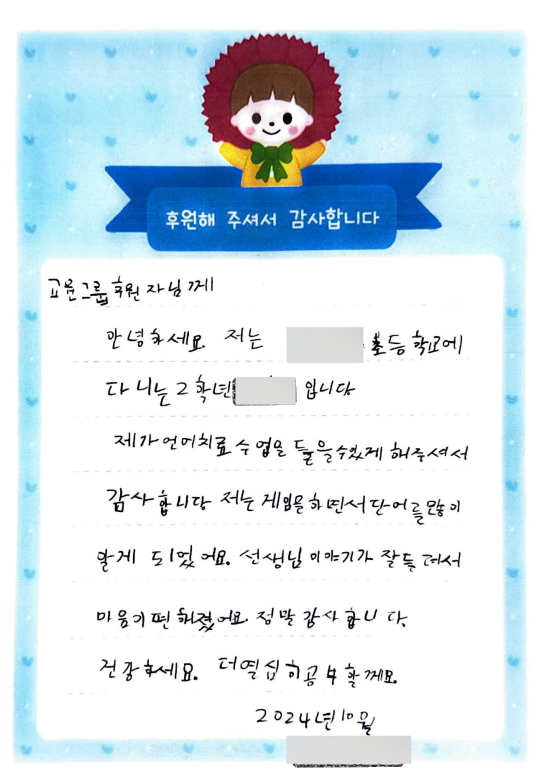 후원해 주셔서 감사합니다
교윤그룹후원자님께
안녕하세요. 저는 초등학교에
다니는 2학년 입니다
제가언어치료수업을 들을수있게 해주셔서
감사합니다 저는 게임을하면서단어를많이
알게 되었어요. 선생님 이야기가 잘들려서
마음이편해졌어요. 정말 감사합니다.
건강하세요. 더열심히공부할께요.
2024년10월